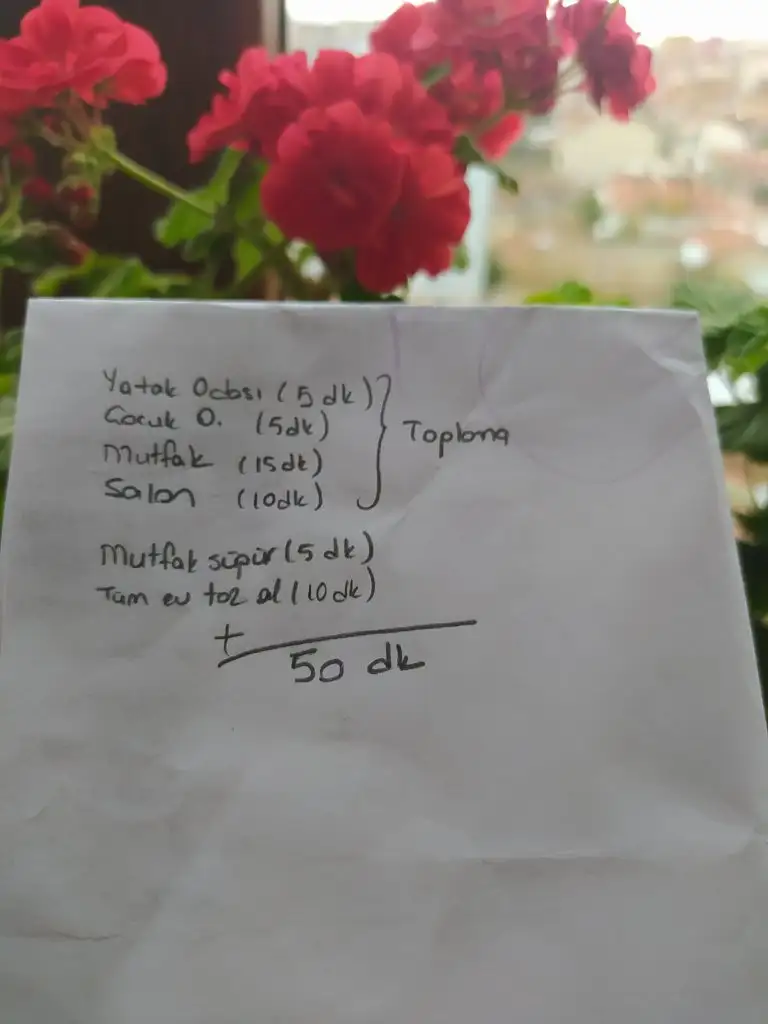 Yatak Odası (5 dk)
Çocuk O. (5dk)
Mutfak (15dk)
Salon (10dk)
Toplama
Mutfak süpür (5 dk)
Tüm ev toz al (10dk)
+
50 dk